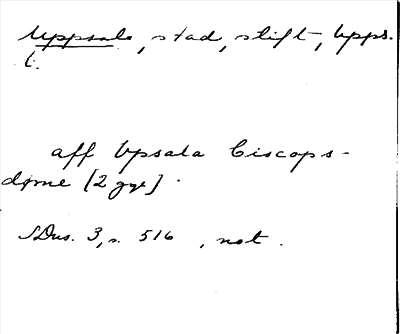 Uppsala, stad, stift, Upps.
l.
aff Vpsala Biscops-
döme (2 ggr).
SDns. 3, s. 516, not.